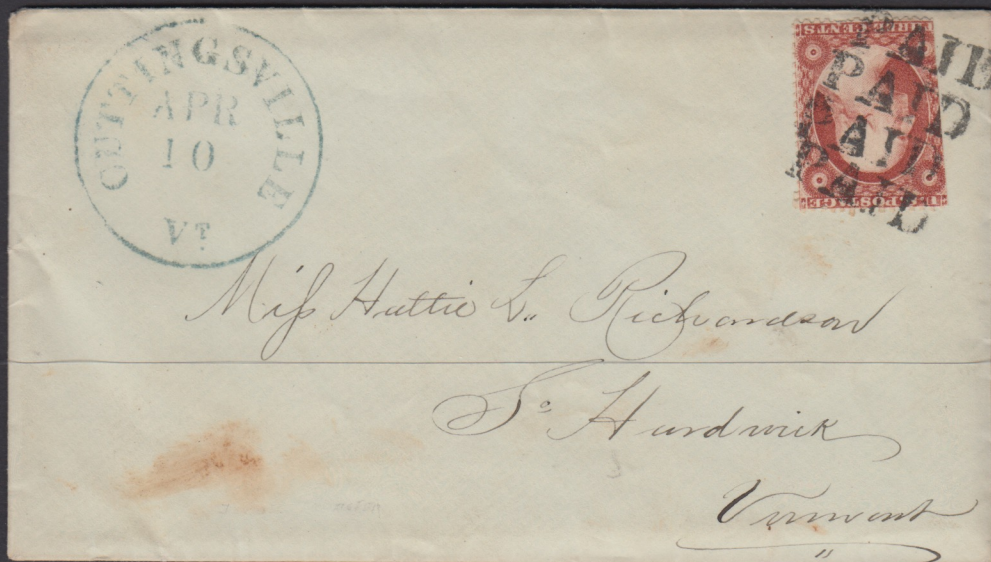 CUTTINGSVILLE
APR
10
VT
THREE CENTS
U.S. POSTAGE
PAID
PAID
AID
PAID
Miſs Hattie L.. Richardson
So Hardwick
Vermont